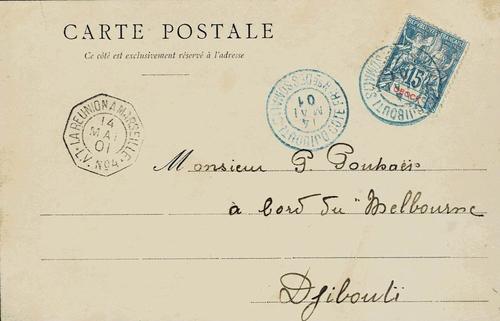 CARTE POSTALE
Ce côté est exclusivement réservé à l'adresse
RÉPUBLIQUE FRANÇAISE
15
OBOCK
14
MAI
01
LA REUNION A MARSEILLE
L.V. No4
14
MAI
01
Monsieur P.
à bord du "Melbourne
Djibouti